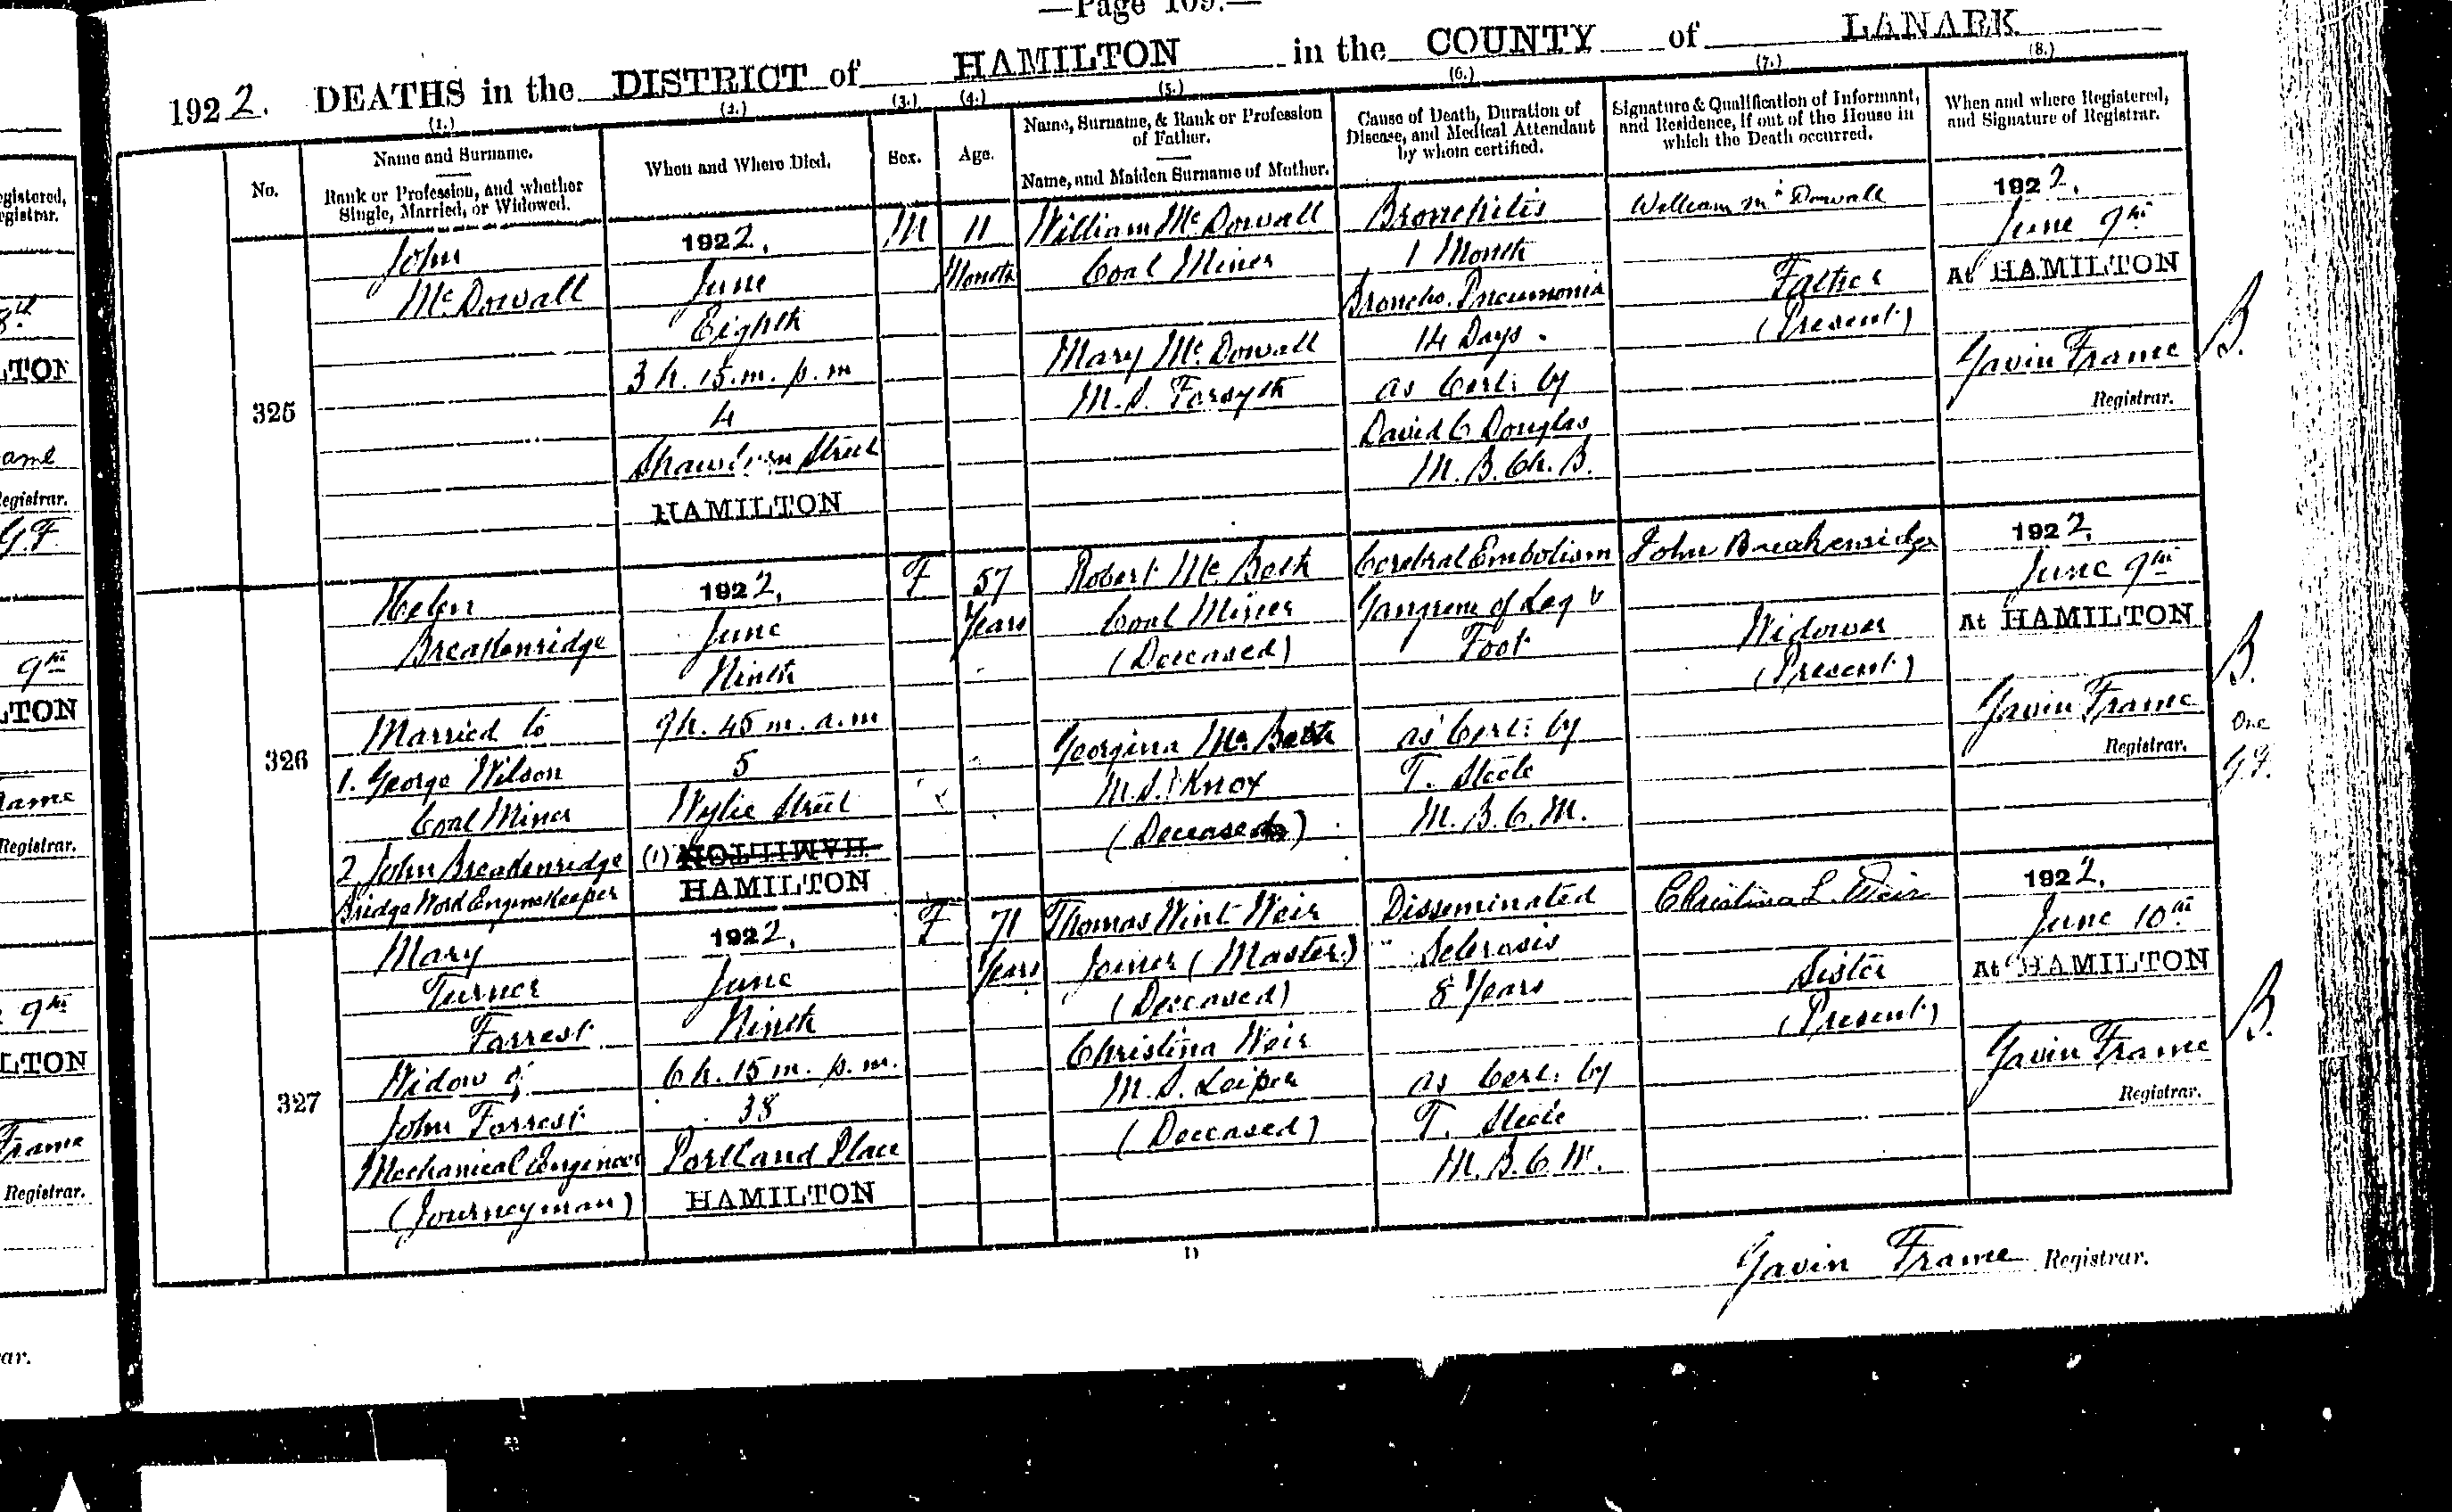 —Page 109.—
1922. DEATHS in the DISTRICT of HAMILTON in the COUNTY of LANARK
(1.) (2.) (3.) (4.) (5.) (6.) (7.) (8.)
No.
Name and Surname.
Rank or Profession, and whether
Single, Married, or Widowed.
When and Where Died.
Sex.
Age.
Name, Surname, & Rank or Profession
of Father.
Name, and Maiden Surname of Mother.
Cause of Death, Duration of
Disease, and Medical Attendant
by whom certified.
Signature & Qualification of Informant,
and Residence, if out of the House in
which the Death occurred.
When and where Registered,
and Signature of Registrar.
325
John
McDowall
1922,
June
Eighth
3 h. 15. m. p. m
4
Street
HAMILTON
M
11
Months
William McDowall
Coal Miner
Mary McDowall
M.S. Forsyth
Bronchitis
1 Month
Broncho. Pneumonia
14 Days.
as Cert: by
David C Douglas
M. B. Ch. B.
William McDowall
Father
(Present)
1922,
June 9th
At HAMILTON
Gavin Frame
Registrar.
B.
326
Helen
Breakenridge
Married to
1. George Wilson
Coal Miner
2 John Breakenridge
Bridge Work Enginekeeper
1922,
June
Ninth
9 h. 45 m. a. m
5
Wylie Street
(1) HAMILTON
HAMILTON
F
57
Years
Robert McBeth
Coal Miner
(Deceased)
Georgina McBeth
M.S. Knox
(Deceased)
Cerebral Embolism
Gangrene of Leg &
Foot
as Cert: by
T. Steele
M. B. C. M.
John Breakenridge
Widower
(Present)
1922,
June 9th
At HAMILTON
Gavin Frame
Registrar.
B.
One
G.F.
327
Mary
Turner
Forrest
Widow of
John Forrest
Mechanical Engineer
(Journeyman)
1922,
June
Ninth
6 h. 15 m. p. m.
38
Portland Place
HAMILTON
F
71
Years
Thomas Wint Weir
Joiner (Master)
(Deceased)
Christina Weir
M.S. Leiper
(Deceased)
Disseminated
Sclerosis
8 Years
as Cert: by
T. Steele
M. B. C. M.
Christina L. Weir
Sister
(Present)
1922,
June 10th
At HAMILTON
Gavin Frame
Registrar.
B.
D
Gavin Frame Registrar.